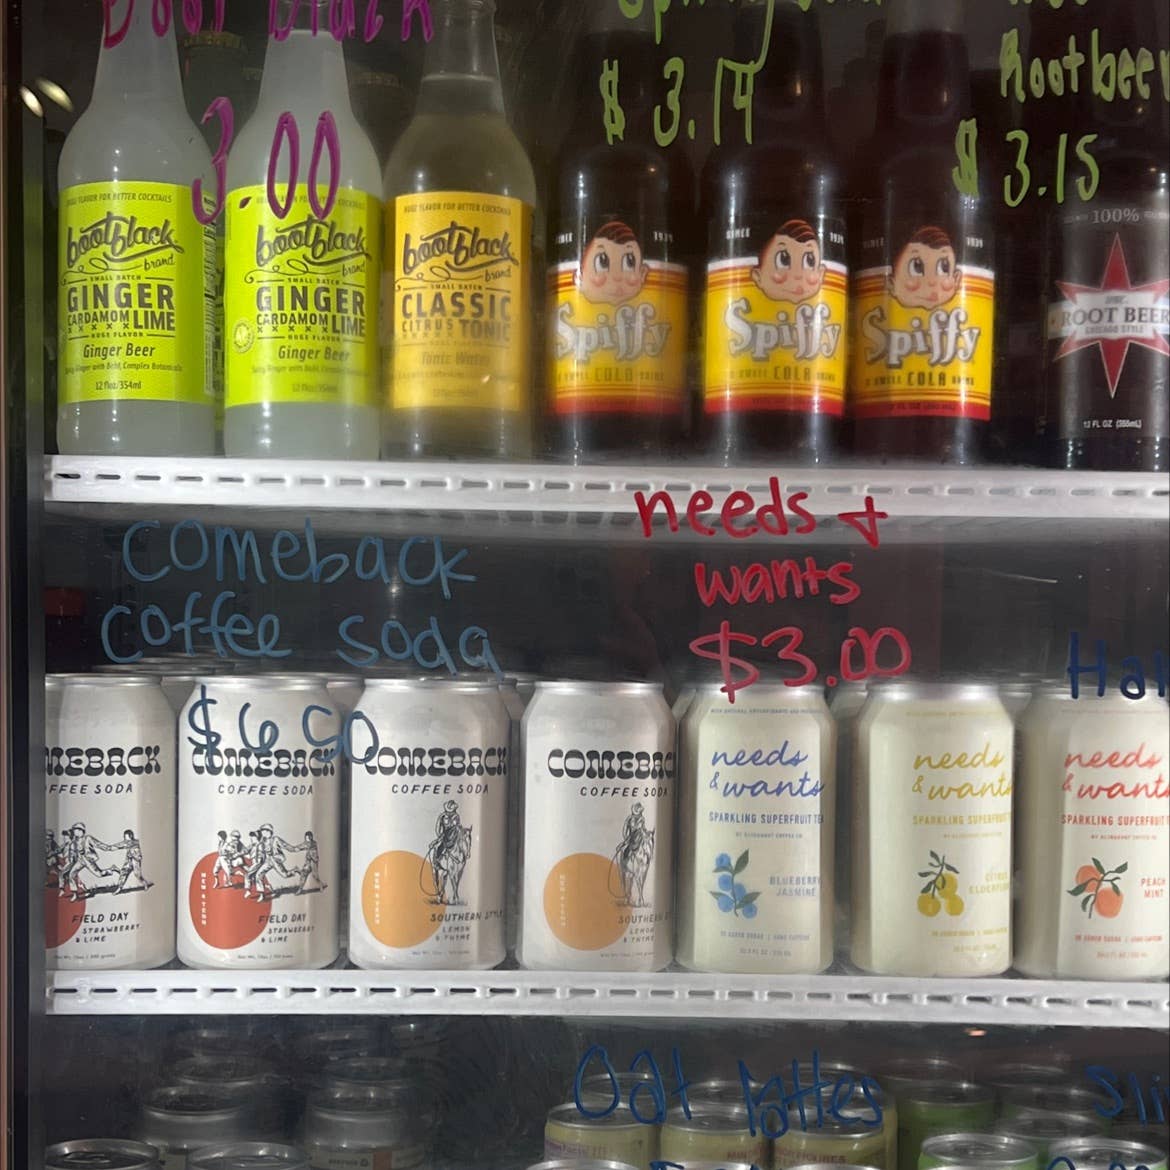 Boot Black
3.00
$ 3.14
Root beer
$ 3.15
HUGE FLAVOR FOR BETTER COCKTAILS
bootblack
brand
SMALL BATCH
GINGER
CARDAMOM LIME
HUGE FLAVOR
Ginger Beer
12 fl oz/354ml
bootblack
brand
SMALL BATCH
GINGER
CARDAMOM LIME
HUGE FLAVOR
Ginger Beer
HUGE FLAVOR FOR BETTER COCKTAILS
bootblack
brand
SMALL BATCH
CLASSIC
CITRUS TONIC
Tonic Water
Spiffy
A SWELL COLA DRINK
SINCE
Spiffy
A SWELL COLA DRINK
Spiffy
A SWELL COLA DRINK
100%
ROOT BEER
CHICAGO STYLE
12 FL OZ (355mL)
needs +
wants
$3.00
Comeback
coffee soda
$6.50
Hal
COMEBACK
COFFEE SODA
FIELD DAY
STRAWBERRY
& LIME
COMEBACK
COFFEE SODA
FIELD DAY
STRAWBERRY
& LIME
COMEBACK
COFFEE SODA
SOUTHERN STYLE
LEMON
& THYME
COMEBACK
COFFEE SODA
SOUTHERN
LEMON
& THYME
needs
& wants
SPARKLING SUPERFRUIT TEA
BLUEBERRY
JASMINE
needs
& wants
SPARKLING SUPERFRUIT
CITRUS
needs
& wants
SPARKLING SUPERFRUIT
PEACH
MINT
Oat lattes
Sli